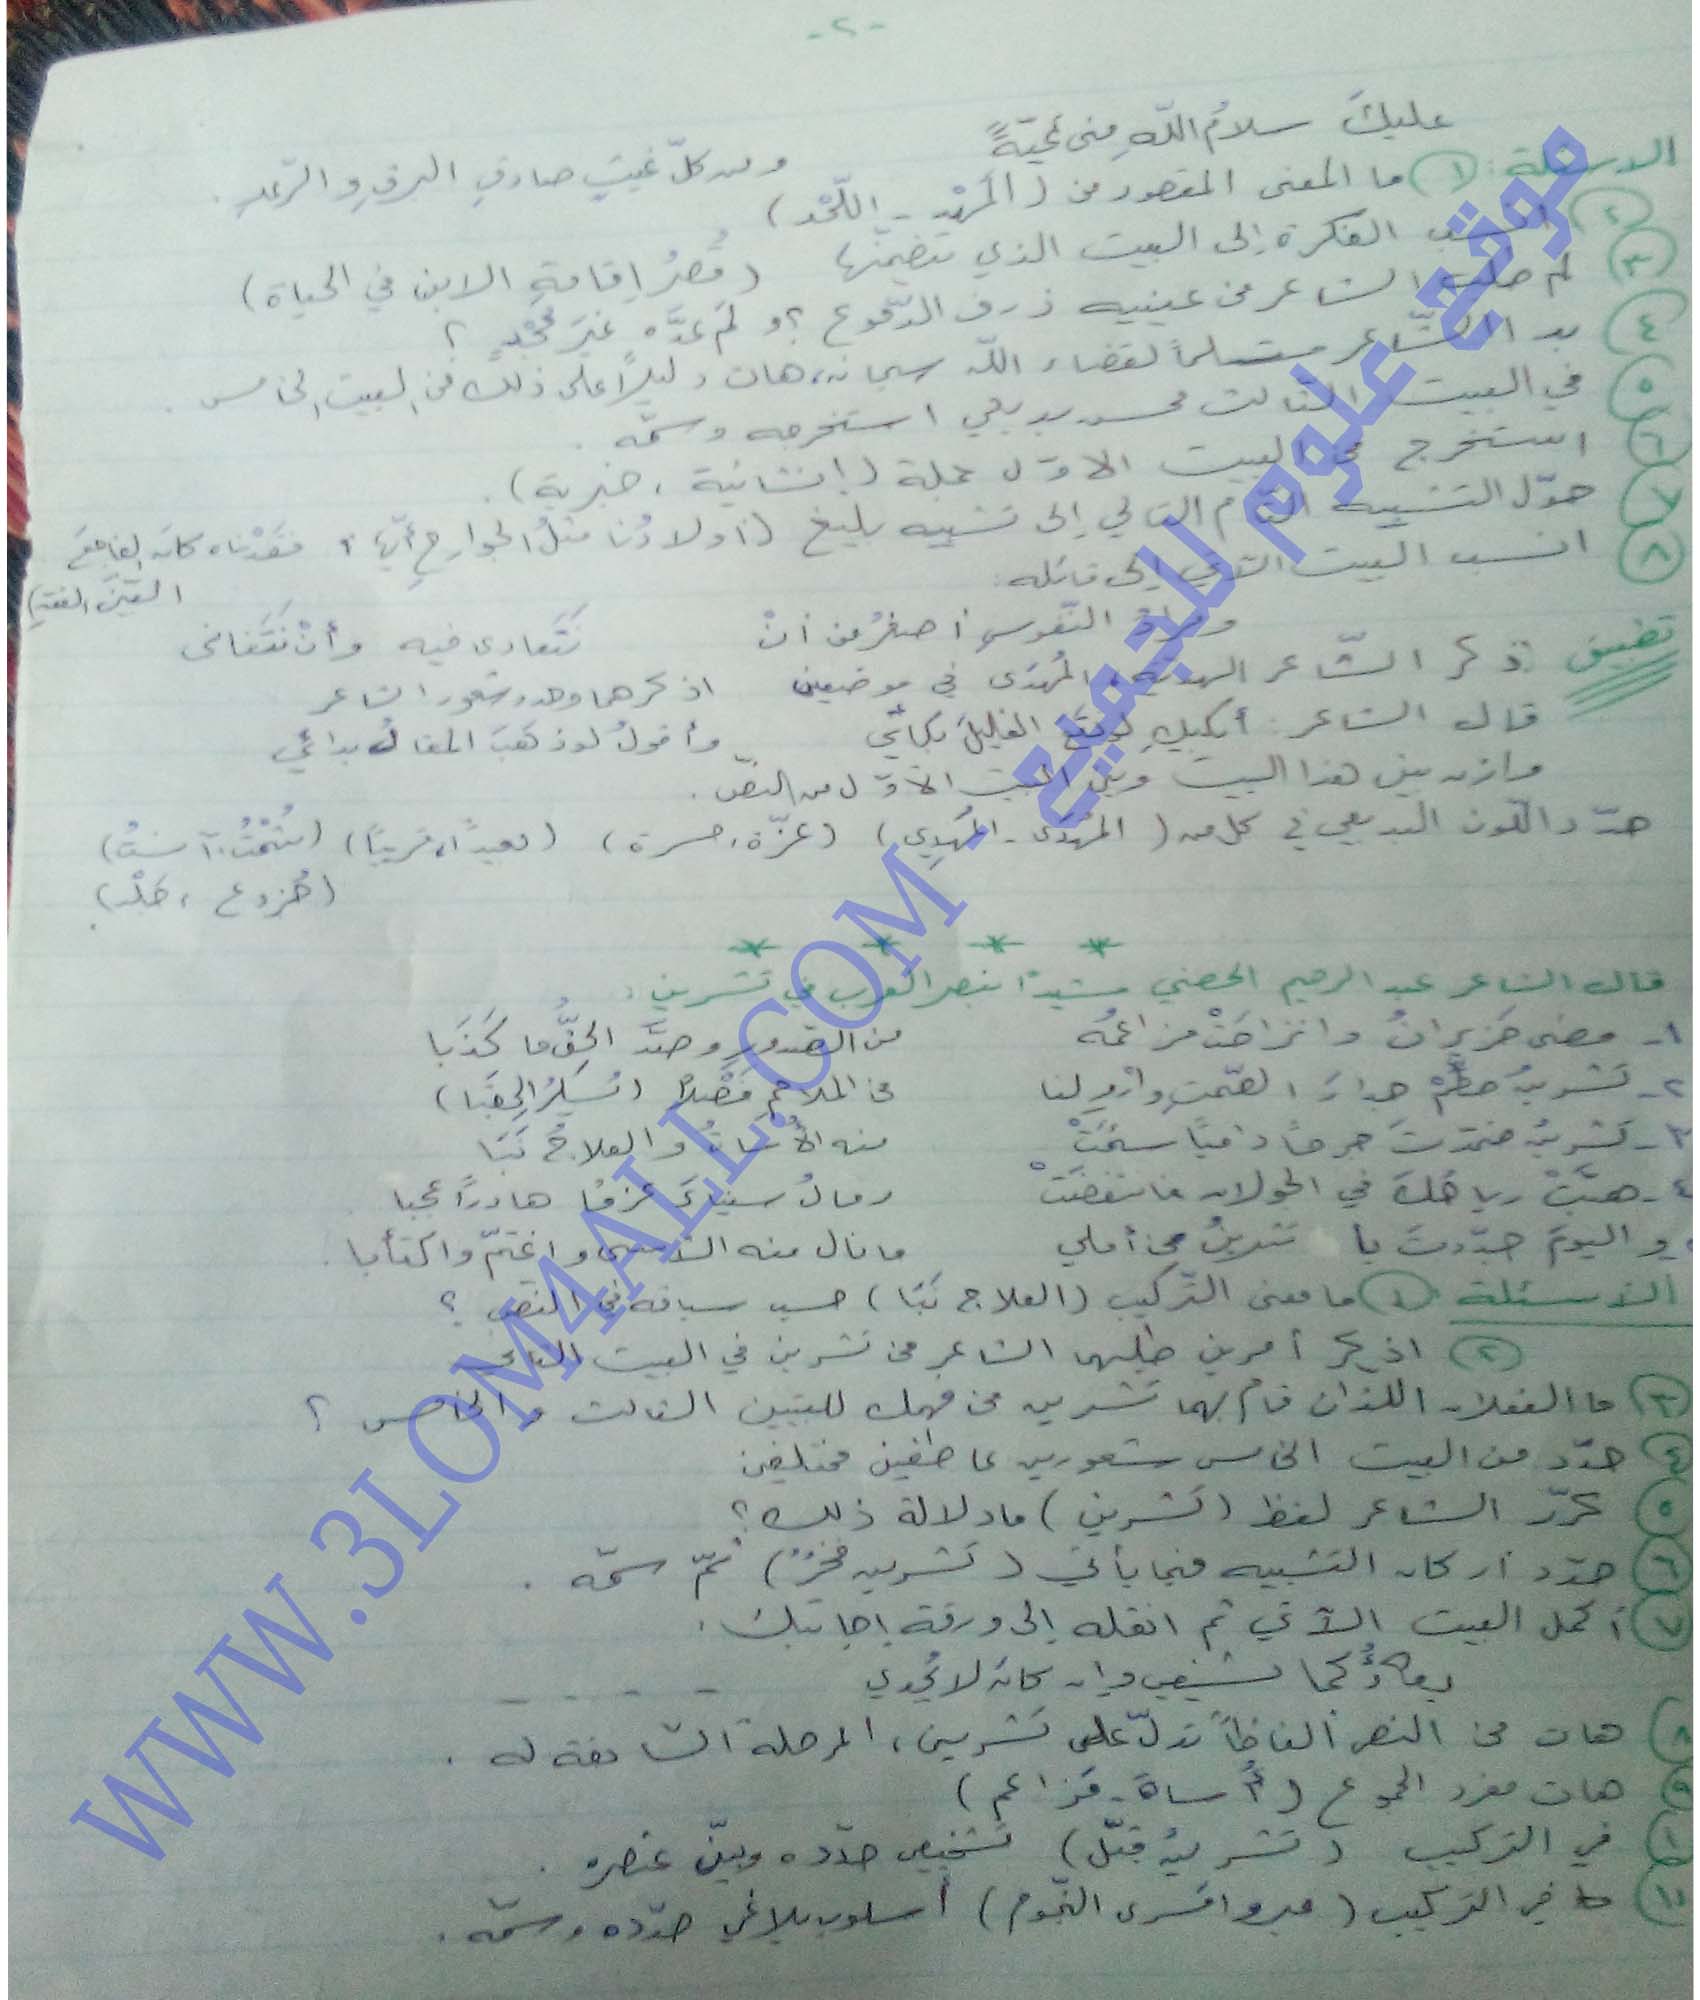 -٢-
عليكَ سلامُ اللّهِ مني تحيّةً
ومن كلّ غيثٍ صادقِ البرقِ والرّعدِ .
الاسئلة: ١ ما المعنى المقصود من (المَهْدِ - اللّحْد)
٢ انسب الفكرة إلى البيت الذي تتضمنها (قِصَرُ إقامةِ الابن في الحياة)
٣ لم طلب الشاعر من عينيه ذرف الدّموع ؟ و لمَ عدَّه غيرَ مُجْدٍ ؟
٤ بدا الشّاعر مستسلماً لقضاء اللّه سبحانه، هات دليلاً على ذلك من البيت الخامس .
٥ في البيت الثالث محسن بديعي استخرجه وسمّه .
٦ استخرج من البيت الاوّل جملة (إنشائية ، خبرية) .
٧ حوّل التشبيه التّام التالي إلى تشبيه بليغ (أولادُنا مثلُ الجوارحِ أيّها فقدْناه كان الفاجعَ البيّنَ الفقدِ)
٨ انسب البيت التالي إلى قائله:
ومرادُ النّفوسِ أصغرُ من أنْ نَتَعادى فيه وأنْ نَتَفانى
تطبيق : ذكر الشّاعر المُهدى في موضعين اذكرهما وحدد شعور الشاعر
قال الشاعر: أبكيكِ لو نقعَ الغليلَ بكائي وأقولُ لو ذهبَ المقالُ بدائي
وازن بين هذا البيت وبين البيت الاوّل من النصّ .
حدّد اللّون البديعي في كل من ( المُهْدَى - المُهدِي) (عزّة، حسرة) (بعيداً، قريباً) (شِمْتُ، آنستُ)
(جزوع ، جَلْد) .
قال الشاعر عبد الرحيم الحصني مشيداً بنصر العرب في تشرين :
١- مضى حَزيرانُ وانزاحَتْ مزاعمُه من الصّدورِ وصدَّ الحقُّ ما كَذَبا
٢- تشرينُ حطِّمْ جدارَ الصّمتِ وارْوِ لنا من الملاحمِ فَصْلاً (يُسكِرُ الحِقَبا)
٣- تشرينُ ضمّدتَ جرحاً دامياً سئمَتْ منه الأُساةُ والعلاجُ نَبَا
٤- هبّتْ رياحُكَ في الجولان فانتفضَتْ رمالُ سيناءَ عزفاً هادراً عجبا
و اليومَ جدّدتَ يا تشرينُ من أملي ما نال منه الأسى واغتمّ واكتأبا .
الأسئلة : ١ ما معنى التّركيب (العلاج نَبَا) حسب سياقه في النّص ؟
٢ اذكر أمرين طلبهما الشاعر من تشرين في البيت الثاني
٣ ما الفعلان اللذان قام بهما تشرين من فهمك للبيتين الثالث والخامس ؟
٤ حدّد من البيت الخامس شعورين عاطفيين مختلفين
٥ كرّر الشاعر لفظ (تشرين) ما دلالة ذلك ؟
٦ حدّد أركان التشبيه فيما يأتي (تشرين فخرٌ) ثمّ سمّه .
٧ أكمل البيت الآتي ثم انقله إلى ورقة إجابتك :
بكاؤُكما يشفي وإن كانَ لا يُجدي - - - -
٨ هات من النص ألفاظاً تدلّ على تشرين، المرحلة السّابقة له .
٩ هات مفرد الجموع (أُساة - مَزاعم)
١٠ في التركيب (تشرينُ قبّل) تشخيص حدّده وبيّن عنصره .
١١ في التركيب (عبروا مَسرى النّجوم) أسلوب بلاغي حدّده وسمّه .
موقع علوم للجميع - WWW.3LOM4ALL.COM